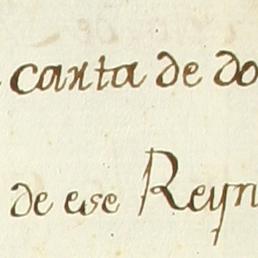 carta de do
de ese Reyn